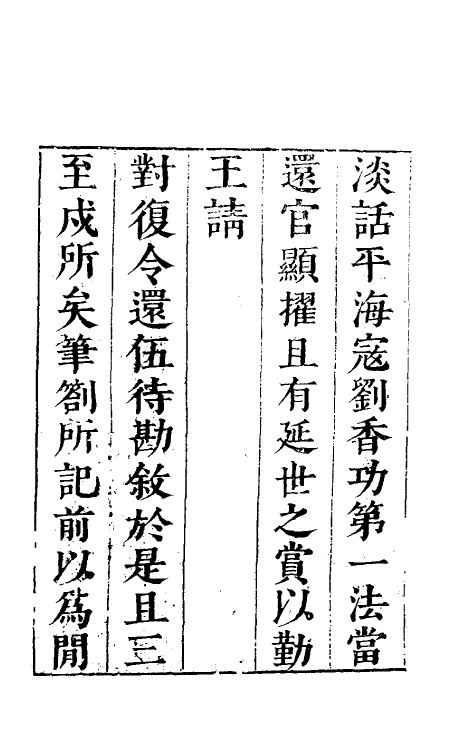 淡話平海寇劉香功第一法當
還官顯擢且有延世之賞以勤
王請
對復令還伍待勘敘於是且三
至戍所矣筆劄所記前以爲閒